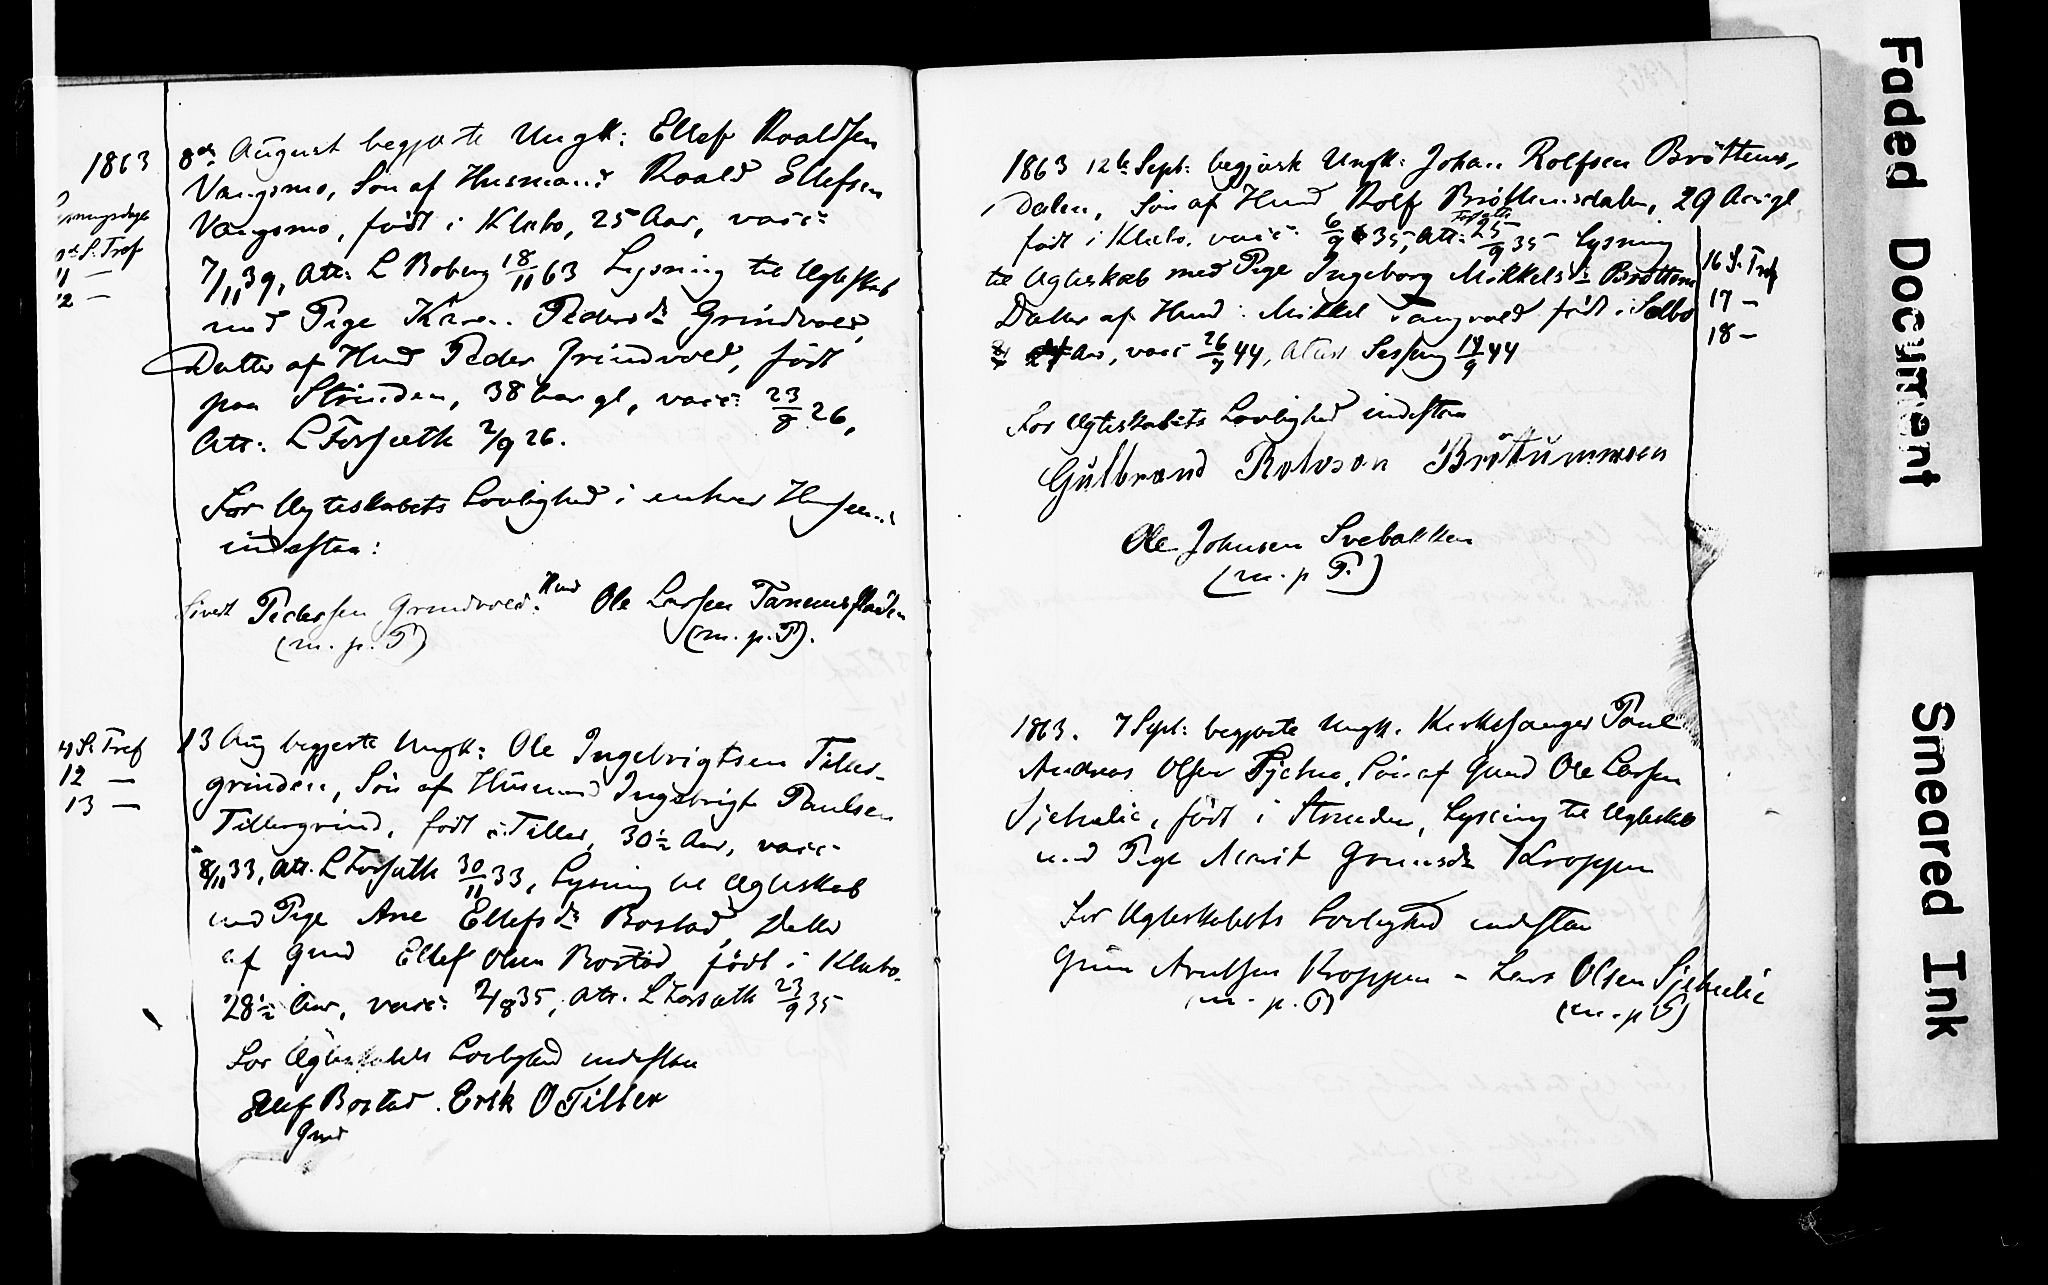 1863
8de August begjærte Ungk: Ellef Roaldsen
Vangsmo, Søn af Husmand Roald Ellefsen
Vangsmo, født i Klæbo, 25 Aar, vacc:
7/11 39, Att: L Boberg 18/11 63 Lysning til Ægteskab
med Pige Karen Pedersdr Grindvold,
Datter af Hmd Peder Grindvold, født
paa Strinden, 38 Aar gl, vacc: 23/8 26,
Att: L Forseth 2/9 26.
For Ægteskabets Lovlighed i enhver Henseende
indestaa:
Sivert Pedersen Grindvold. Hmd Ole Larsen Tanemsfladen
(m. p. P) (m. p. P).
S. Tref
11 —
12 —
S. Tref
12 —
13 —
13 Aug begjærte Ungk: Ole Ingebrigtsen Tiller-
grinden, Søn af Husmand Ingebrigt Paulsen
Tillergrind, født i Tiller, 30½ Aar, vacc:
8/11 33, Att. L Forseth 30/11 33, Lysning til Ægteskab
med Pige Ane Ellefsdr Bostad Datter
af Gmd Ellef Olsen Bostad, født i Klæbo.
28½ Aar, vacc: 2/8 35, Att. L Forseth 23/9 35
For Ægteskabets Lovlighed indestaa
Ellef Bostad. Erik O Tiller
Gmd
1863 12te Sept: begjærte Ungk: Johan Rolfsen Brøttems-
Dalen, Søn af Hmd Rolf Brøttemsdalen, 29 Aar gl
født i Klæbo. vacc: 6/9 35, Att: 25/9 35 Lysning
til Ægteskab med Pige Ingeborg Mikkelsdr Brøttem
Datter af Hmd: Mikkel født i Selbo
Aar, vacc 26/9 44, Attest 14/9 44
16 S. Tref
17 —
18 —
For Ægteskabets Lovlighed indestaa
Gulbrand Rolvson Brøttummoen
Ole Johnsen Svebakken
(m. p P.)
1863. 7 Sept: begjærte Ungk. Kirkesanger Paul
Andreas Olsen Sjetne, Søn af Gmd Ole Larsen
Sjetnelie, født i Strinden, Lysning til Ægteskab
med Pige Marit Grunsdr Kroppen
For Ægteskabets Lovlighed indestaa
Grun Arntsen Kroppen – Lars Olsen Sjetnelie
(m. p. P) (m. p P)
Faded Document
Smeared Ink